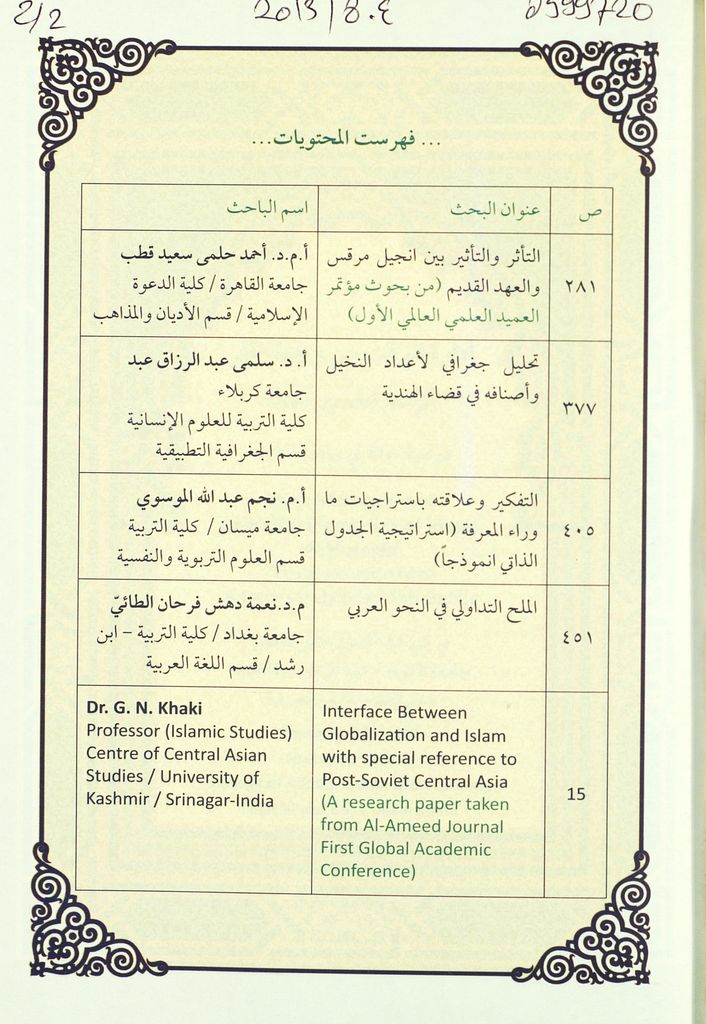 2/2
2013/8.4
... فهرست المحتويات...
ص
عنوان البحث
اسم الباحث
٢٨١
التأثر والتأثير بين انجيل مرقس
والعهد القديم (من بحوث مؤتمر
العميد العلمي العالمي الأول)
أ.م.د. أحمد حلمى سعيد قطب
جامعة القاهرة / كلية الدعوة
الإسلامية / قسم الأديان والمذاهب
٣٧٧
تحليل جغرافي لأعداد النخيل
وأصنافه في قضاء الهندية
أ. د. سلمى عبد الرزاق عبد
جامعة كربلاء
كلية التربية للعلوم الإنسانية
قسم الجغرافية التطبيقية
٤٠٥
التفكير وعلاقته باستراجيات ما
وراء المعرفة (استراتيجية الجدول
الذاتي انموذجاً)
أ.م. نجم عبد الله الموسوي
جامعة ميسان / كلية التربية
قسم العلوم التربوية والنفسية
٤٥١
الملح التداولي في النحو العربي
م.د.نعمة دهش فرحان الطائيّ
جامعة بغداد / كلية التربية – ابن
رشد / قسم اللغة العربية
Dr. G. N. Khaki
Professor (Islamic Studies)
Centre of Central Asian
Studies / University of
Kashmir / Srinagar-India
Interface Between
Globalization and Islam
with special reference to
Post-Soviet Central Asia
(A research paper taken
from Al-Ameed Journal
First Global Academic
Conference)
15